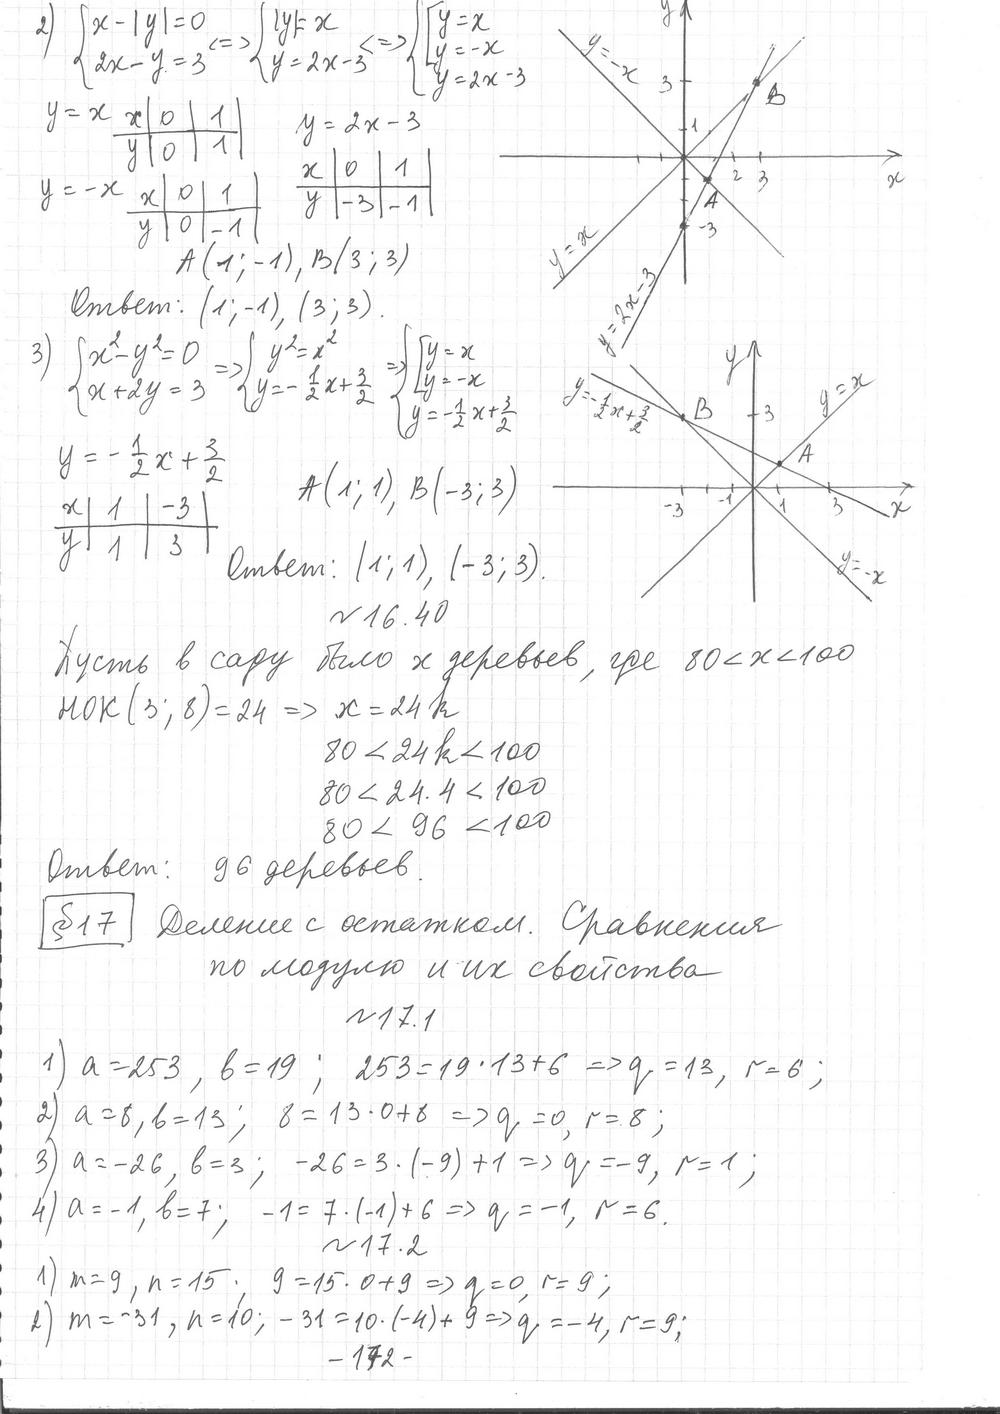 2) { x - |y| = 0 <=> { |y| = x <=> { [ y = x
2x - y = 3 y = 2x - 3 y = -x
y = 2x - 3
y = x x | 0 | 1 y = 2x - 3
y | 0 | 1
x | 0 | 1
y = -x x | 0 | 1 y | -3 | -1
y | 0 | -1
A(1; -1), B(3; 3)
Ответ: (1; -1), (3; 3).
y
y = -x
3
B
1
2 3 x
A
-3
y = x
y = 2x - 3
3) { x² - y² = 0 => { y² = x² => { [ y = x
x + 2y = 3 y = -1/2 x + 3/2 y = -x
y = -1/2 x + 3/2
y = -1/2 x + 3/2
x | 1 | -3
y | 1 | 3
A(1; 1), B(-3; 3)
Ответ: (1; 1), (-3; 3).
y
y = x
y = -1/2 x + 3/2
B
3
A
-3 -1 1 3 x
y = -x
~16.40
Пусть в саду было x деревьев, где 80 < x < 100
НОК(3; 8) = 24 => x = 24k
80 < 24k < 100
80 < 24·4 < 100
80 < 96 < 100
Ответ: 96 деревьев.
§17 Деление с остатком. Сравнения
по модулю и их свойства
~17.1
1) a = 253, b = 19; 253 = 19·13 + 6 => q = 13, r = 6;
2) a = 8, b = 13; 8 = 13·0 + 8 => q = 0, r = 8;
3) a = -26, b = 3; -26 = 3·(-9) + 1 => q = -9, r = 1;
4) a = -1, b = 7; -1 = 7·(-1) + 6 => q = -1, r = 6.
~17.2
1) m = 9, n = 15; 9 = 15·0 + 9 => q = 0, r = 9;
2) m = -31, n = 10; -31 = 10·(-4) + 9 => q = -4, r = 9;